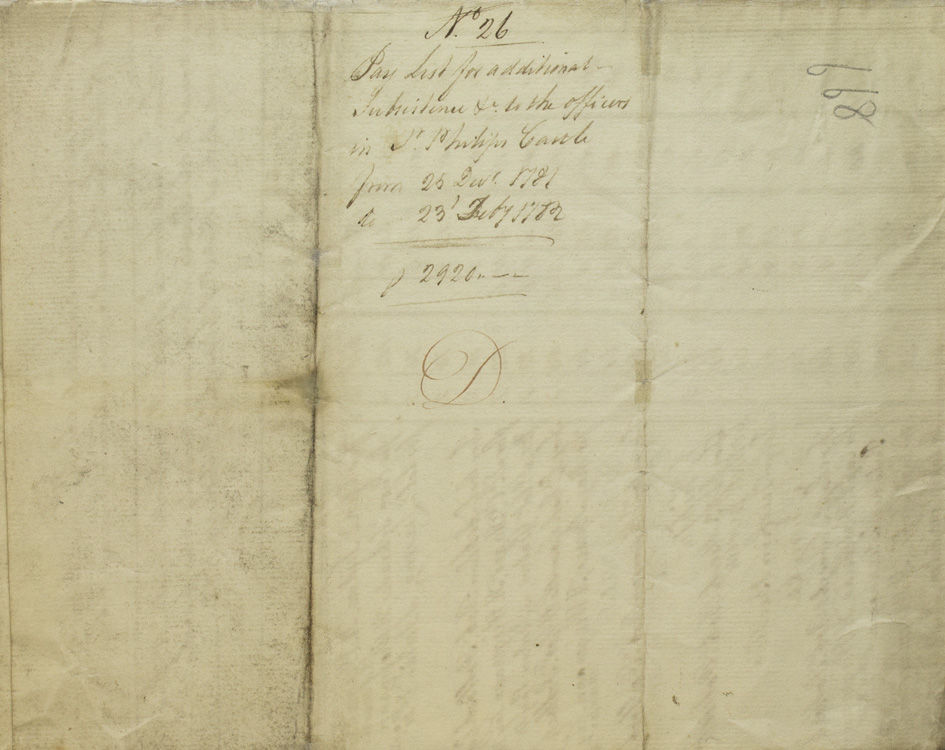 No. 26
Pay List for additional
Subsistence &c. to the officers
in St. Philips Castle
from 25 Decr. 1781
to 23d Feby 1782
2920
D
899